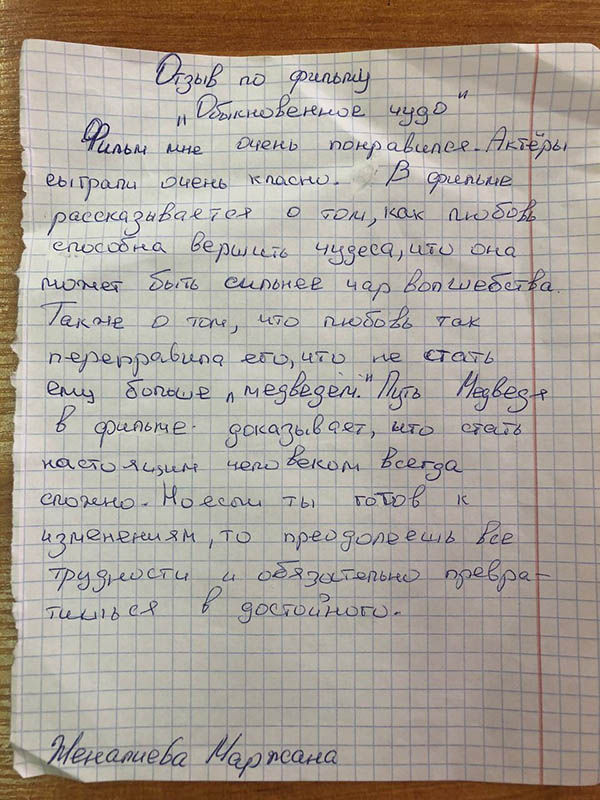 Отзыв по фильму
„Обыкновенное чудо"
Фильм мне очень понравился. Актёры
сыграли очень класно. В фильме
рассказывается о том, как любовь
способна вершить чудеса, что она
может быть сильнее чар волшебства.
Также о том, что любовь так
переправила его, что не стать
ему больше „медведем." Путь Медведя
в фильме доказывает, что стать
настоящим человеком всегда
сложно. Но если ты готов к
изменениям, то преодолеешь все
трудности и обязательно превра-
тишься в достойного.
Женалиева Маржана